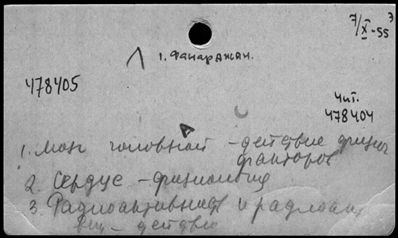 7/X-55 3
1. Фанарджан.
478405
Чит.
478404
1. Мозг головной - действие физич
факторов
2. Сердце - физиология
3. Радиоактивность и радиоакт
вещ. - действие